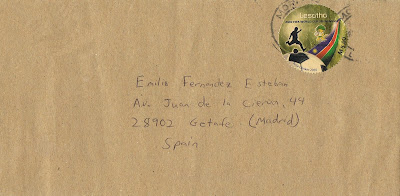 Lesotho
Emilio Fernandez Esteban
Av. Juan de la Cierva, 44
28902 Getafe (Madrid)
Spain